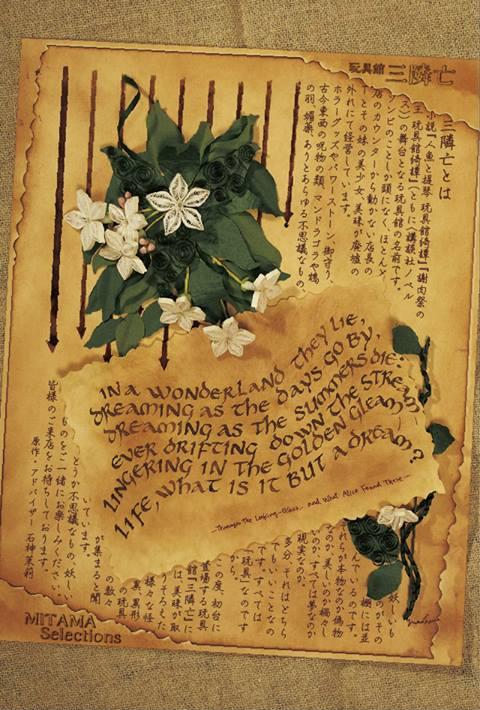 玩具館 三隣亡
三隣亡とは
小説『人魚と提琴 玩具館綺譚』『謝肉祭の
王 玩具館綺譚』(ともに、講談社ノベル
ス)の舞台となる玩具館の名前です。
ゾンビのことしか頭になく、ほとんど
店のカウンターから動かない店長の
下とその妹の美少女 美珠が廃墟の
外れにて経営しています。
ホラーグッズやパワーストーン、御守り、
古今東西の呪物の類、マンドラゴラや鴆
の羽、媚薬、ありとあらゆる不思議なもの、
IN A WONDERLAND THEY LIE,
DREAMING AS THE DAYS GO BY,
DREAMING AS THE SUMMERS DIE:
EVER DRIFTING DOWN THE STREAM
LINGERING IN THE GOLDEN GLEAM
LIFE, WHAT IS IT BUT A DREAM?
—Through The Looking-Glass, and What Alice Found There—
妖しいも
のがその
棚には並
んでいるのです。
れらが本物なのか偽物
なのか、美しいのか禍々し
いのか、すべては夢なのか
現実なのか。
多分、それはどちら
でもいいことなの
です。すべては
「玩具」なのです
から。
この度、初台に
蒼場する玩具
館『三隣亡』に
は、美珠が取
りそろえた
様々な怪
異、異形
の玩具
の数々
が集まると聞
いています。
どうか不思議なもの、妖しい
ものをご一緒にお楽しみください。
皆様のご来店をお待ちしております。
原作・アドバイザー 石神茉莉
MITAMA
Selections